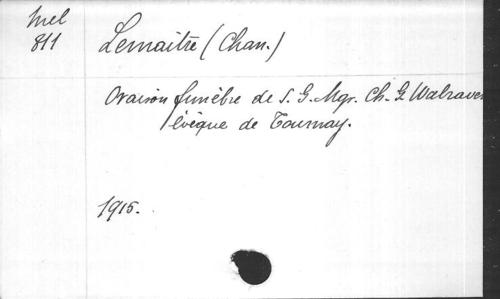 Mel
811
Lemaitre (Chan.)
Oraison funèbre de S. G. Mgr. Ch. G. Walraven
évêque de Tournay.
1915.